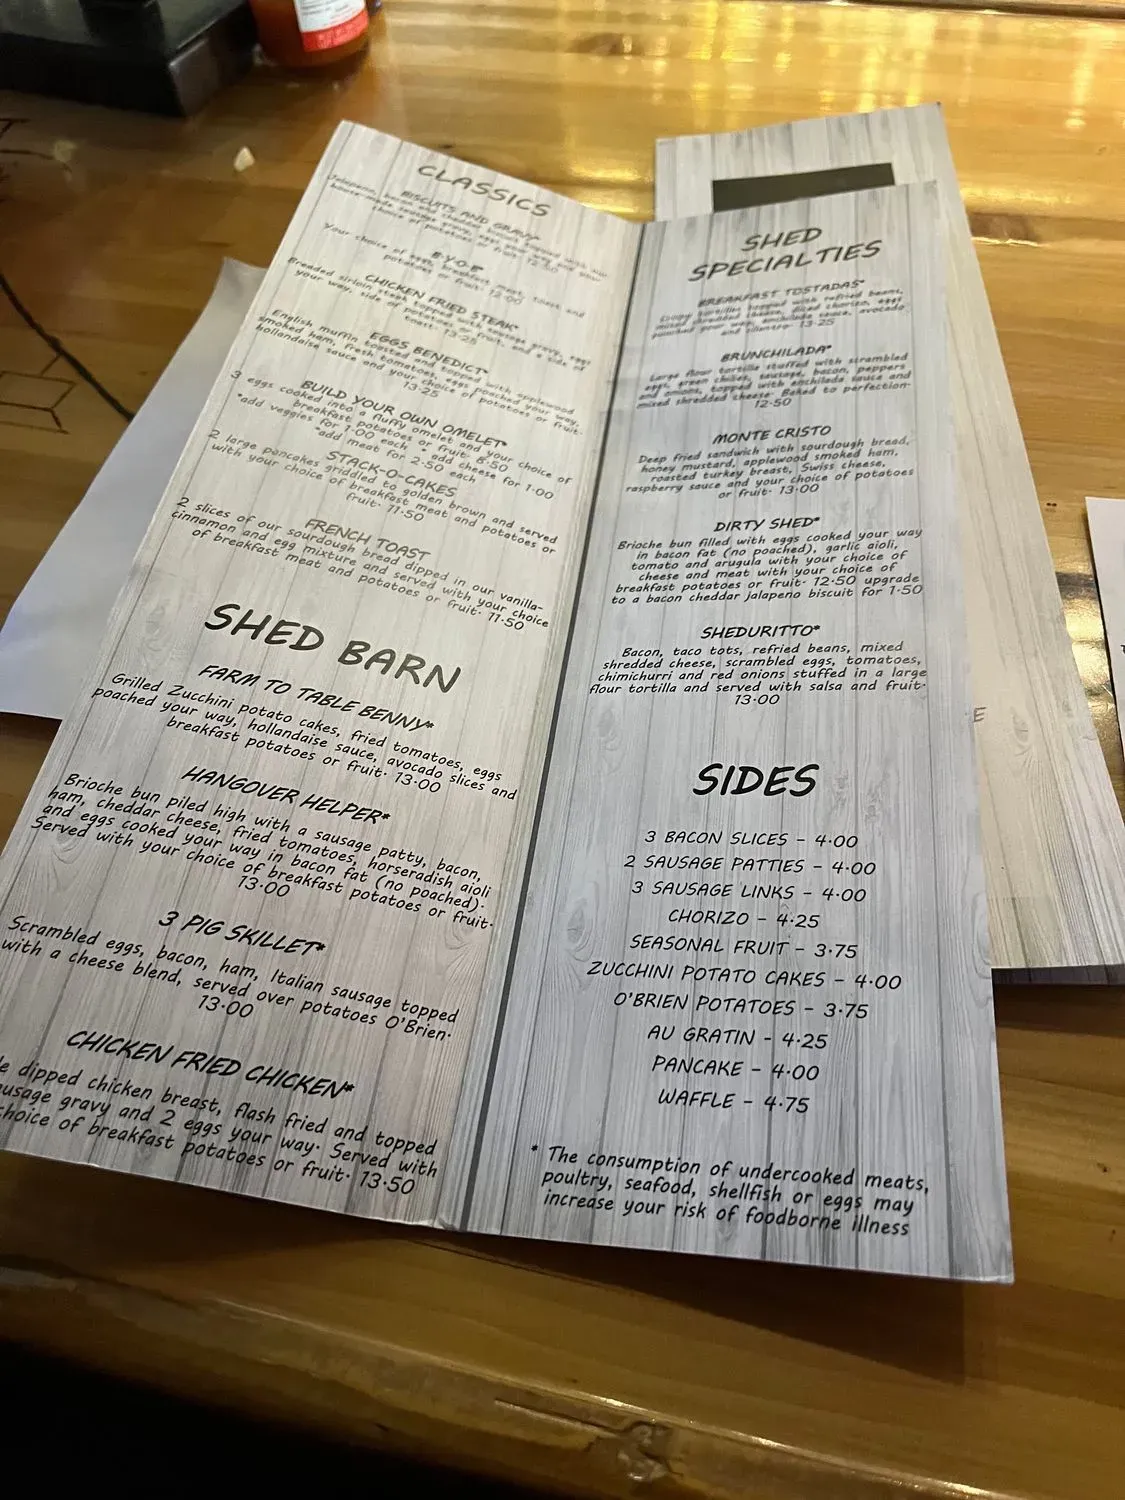 CLASSICS
BISCUITS AND GRAVY*
Jalapeno, bacon and cheddar biscuit topped with our
house-made sausage gravy, eggs your way and your
choice of potatoes or fruit· 12·50
B·Y·O·B*
Your choice of eggs, breakfast meat, toast and
potatoes or fruit· 12·00
CHICKEN FRIED STEAK*
Breaded sirloin steak topped with sausage gravy, eggs
your way, side of potatoes or fruit, and a side of
toast· 13·25
EGGS BENEDICT*
English muffin toasted and topped with applewood
smoked ham, fresh tomatoes, eggs poached your way,
hollandaise sauce and your choice of potatoes or fruit·
13·25
BUILD YOUR OWN OMELET*
3 eggs cooked into a fluffy omelet and your choice of
breakfast potatoes or fruit· 8·50
*add veggies for 1·00 each * add cheese for 1·00
*add meat for 2·50 each
STACK-O-CAKES
2 large pancakes griddled to golden brown and served
with your choice of breakfast meat and potatoes or
fruit· 11·50
FRENCH TOAST
2 slices of our sourdough bread dipped in our vanilla-
cinnamon and egg mixture and served with your choice
of breakfast meat and potatoes or fruit· 11·50
SHED BARN
FARM TO TABLE BENNY*
Grilled Zucchini potato cakes, fried tomatoes, eggs
poached your way, hollandaise sauce, avocado slices and
breakfast potatoes or fruit· 13·00
HANGOVER HELPER*
Brioche bun piled high with a sausage patty, bacon,
ham, cheddar cheese, fried tomatoes, horseradish aioli
and eggs cooked your way in bacon fat (no poached)·
Served with your choice of breakfast potatoes or fruit·
13·00
3 PIG SKILLET*
Scrambled eggs, bacon, ham, Italian sausage topped
with a cheese blend, served over potatoes O'Brien·
13·00
CHICKEN FRIED CHICKEN*
dipped chicken breast, flash fried and topped
gravy and 2 eggs your way· Served with
choice of breakfast potatoes or fruit· 13·50
SHED
SPECIALTIES
BREAKFAST TOSTADAS*
Crispy tortillas topped with refried beans,
mixed shredded cheese, diced chorizo, eggs
poached your way, enchilada sauce, avocado
and cilantro· 13·25
BRUNCHILADA*
Large flour tortilla stuffed with scrambled
eggs, green chilies, sausage, bacon, peppers
and onions, topped with enchilada sauce and
mixed shredded cheese· Baked to perfection·
12·50
MONTE CRISTO
Deep fried sandwich with sourdough bread,
honey mustard, applewood smoked ham,
roasted turkey breast, Swiss cheese,
raspberry sauce and your choice of potatoes
or fruit· 13·00
DIRTY SHED*
Brioche bun filled with eggs cooked your way
in bacon fat (no poached), garlic aioli,
tomato and arugula with your choice of
cheese and meat with your choice of
breakfast potatoes or fruit· 12·50 upgrade
to a bacon cheddar jalapeno biscuit for 1·50
SHEDURITTO*
Bacon, taco tots, refried beans, mixed
shredded cheese, scrambled eggs, tomatoes,
chimichurri and red onions stuffed in a large
flour tortilla and served with salsa and fruit·
13·00
SIDES
3 BACON SLICES - 4·00
2 SAUSAGE PATTIES - 4·00
3 SAUSAGE LINKS - 4·00
CHORIZO - 4·25
SEASONAL FRUIT - 3·75
ZUCCHINI POTATO CAKES - 4·00
O'BRIEN POTATOES - 3·75
AU GRATIN - 4·25
PANCAKE - 4·00
WAFFLE - 4·75
* The consumption of undercooked meats,
poultry, seafood, shellfish or eggs may
increase your risk of foodborne illness
E